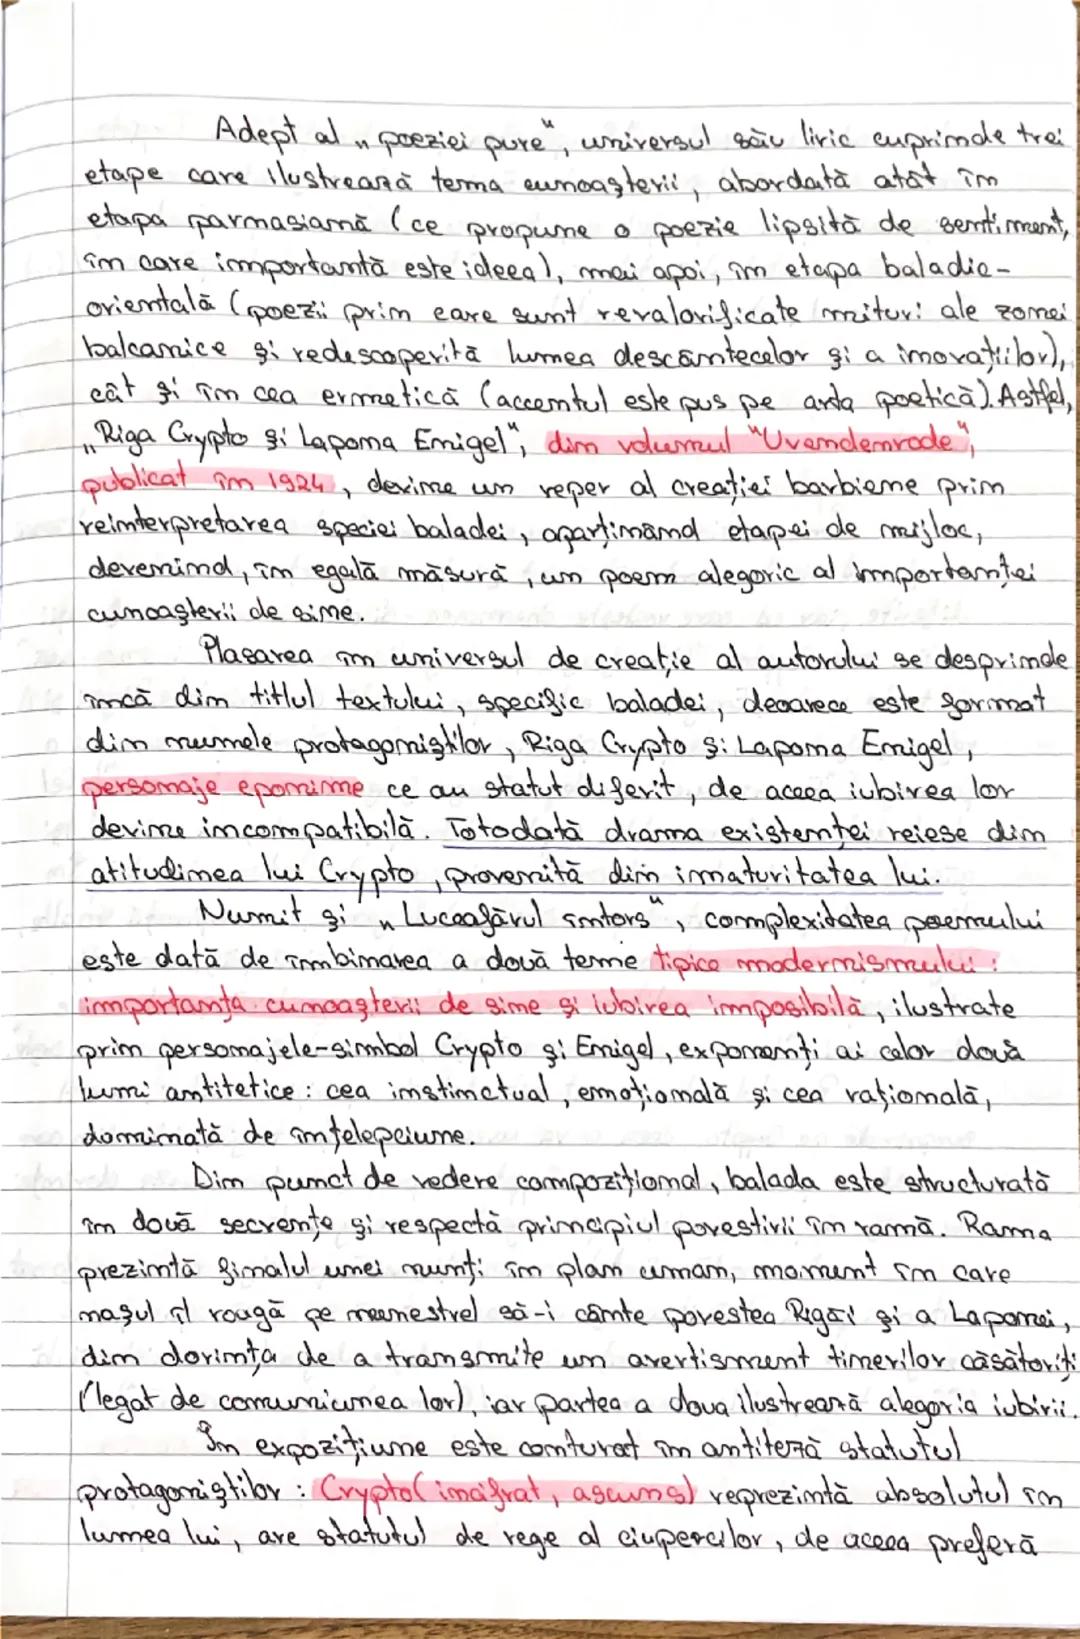 Adept al „poeziei pure", universul său liric cuprinde trei
etape care ilustrează tema cunoașterii, abordată atât în
etapa parnasiană (ce propune o poezie lipsită de sentiment,
în care importantă este ideea), mai apoi, în etapa baladic-
orientală (poezii prin care sunt revalorificate mituri ale zonei
balcanice și redescoperită lumea descântecelor și a inovațiilor),
cât și în cea ermetică (accentul este pus pe arta poetică). Astfel,
„Riga Crypto și Lapona Enigel", din volumul "Uvendenrode",
publicat în 1924, devine un reper al creației barbiene prin
reinterpretarea speciei baladei, aparținând etapei de mijloc,
devenind, în egală măsură, un poem alegoric al importanței
cunoașterii de sine.
Plasarea în universul de creație al autorului se desprinde
încă din titlul textului, specific baladei, deoarece este format
din numele protagoniștilor, Riga Crypto și Lapona Enigel,
personaje eponime ce au statut diferit, de aceea iubirea lor
devine incompatibilă. Totodată drama existenței reiese din
atitudinea lui Crypto, provenită din imaturitatea lui.
Numit și „Luceafărul întors", complexitatea poemului
este dată de îmbinarea a două teme tipice modernismului:
importanța cunoașterii de sine și iubirea imposibilă, ilustrate
prin personajele-simbol Crypto și Enigel, exponenți ai celor două
lumi antitetice: cea instinctual, emoțională și cea rațională,
dominată de înțelepciune.
Din punct de vedere compozițional, balada este structurată
în două secvențe și respectă principiul povestirii în ramă. Rama
prezintă finalul unei nunți în plan uman, moment în care
nașul îl roagă pe menestrel să-i cânte povestea Rigăi și a Laponei,
din dorința de a transmite un avertisment tinerilor căsătoriți
(legat de comuniunea lor), iar partea a doua ilustrează alegoria iubirii.
În expozițiune este conturat în antiteză statutul
protagoniștilor: Crypto (înaifrat, ascuns) reprezintă absolutul în
lumea lui, are statutul de rege al ciupercilor, de aceea preferă